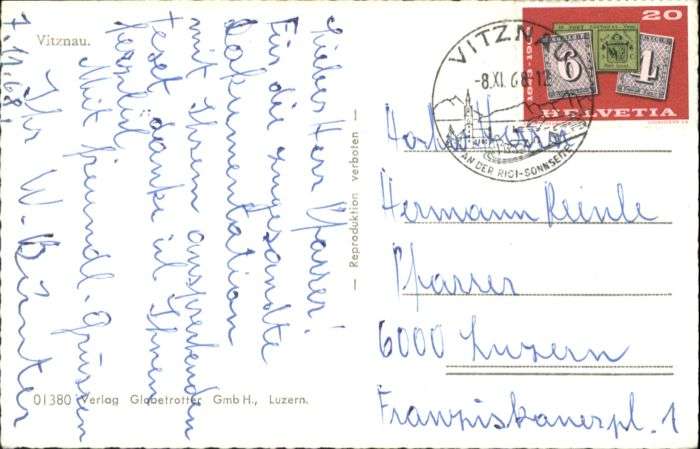 Vitznau.
7.11.68.
Lieber Herr Pfarrer!
Für die zugesandte
Dokumentation
mit Ihrem ansprechenden
Text danke ich Ihnen
herzlich.
Mit freundl. Grüssen
Ihr W.
01380 Verlag Globetrotter GmbH., Luzern.
— Reproduktion verboten —
VITZNAU
-8.XI.68-12
AN DER RIGI-SONNSEITE
20
6
4
HELVETIA
Hermann Reinle
Pfarrer
6000 Luzern
Franziskanerpl. 1